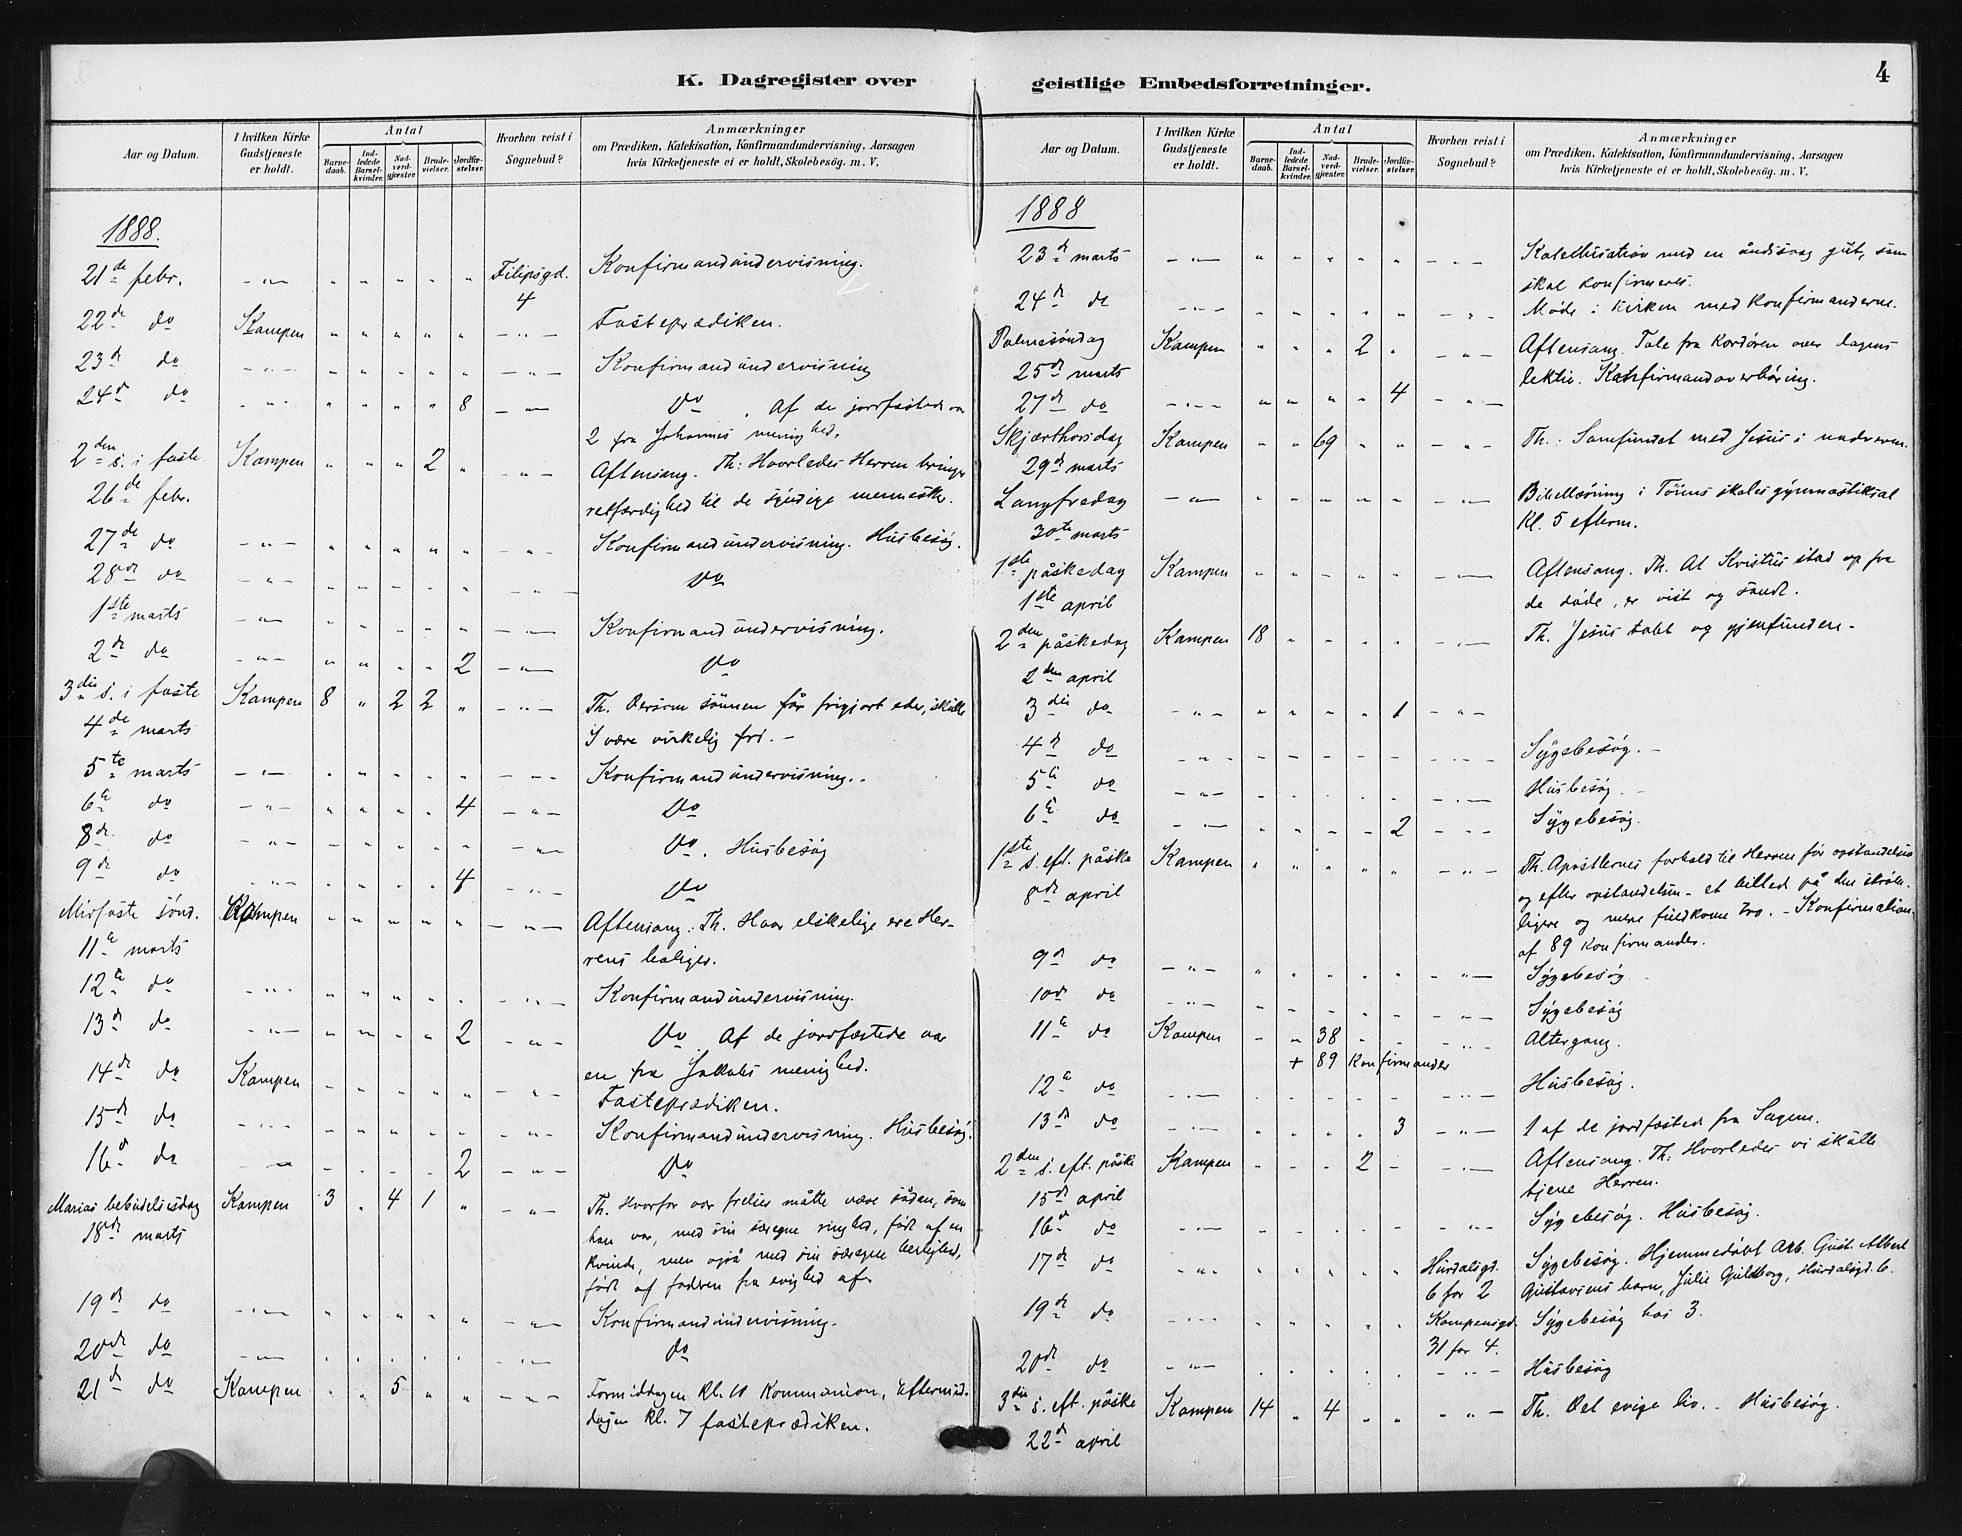 K. Dagregister over geistlige Embedsforretninger.
4
Aar og Datum.
I hvilken Kirke Gudstjeneste er holdt.
Antal
Barnedaab.
Indledede Barselkvinder.
Nadverdgjæster
Brudevielser.
Jordfæstelser.
Hvorhen reist i Sognebud?
Anmærkninger
om Prædiken, Katekisation, Konfirmandundervisning, Aarsagen
hvis Kirketjeneste ei er holdt, Skolebesög. m. V.
1888.
21de febr. - " - " " " " " Filipsgd. 4 Konfirmandundervisning.
22de do Kampen " " " " " - " - Fasteprædiken.
23de do - " - - " - Konfirmandundervisning
24de do " " " " " 8 - " - Do. Af de jordfæstede var
2 fra Johannes menighed.
2den s. i faste Kampen " " " 2 " - " - Aftensang. Th: Hvorledes Herren bringer
26de febr. retfærdighed til de syndige mennesker.
27de do - " - " " " " " - " - Konfirmandundervisning. Husbesøg.
28de do - " - " " " " " - " - Do
1ste marts - " - " " " " " - " - Konfirmandundervisning.
2de do - " - " " " " 2 - " - Do
3die s. i faste Kampen 8 " 2 2 " - " - Th. Dersom sønnen får frigjort eder, skulle
4de marts I være virkelig fri. -
5te marts - " - " " " " " - " - Konfirmandundervisning.
6te do - " - " " " " 4 - " - Do
8de do - " - " " " " " - " - Do. Husbesøg
9de do " " " " " 4 - " - Do
Midfaste sønd. Kampen " " " " " - " - Aftensang. Th. Hvor elskelige ere Her-
11te marts rens boliger.
12te do " " " " " " - " - Konfirmandundervisning.
13de do - " - " " " " 2 - " - Do Af de jordfæstede var
en fra Jakobs menighed.
14de do Kampen " " " " " - " - Fasteprædiken.
15de do - " - " " " " " - " - Konfirmandundervisning. Husbesøg.
16de do - " - " " " " 2 - " - Do
Marias bebudelsesdag Kampen 3 " 4 1 " - " - Th. Hvorfor vor frelser måtte være sådan, som
18de marts han var, med sin særegne ringhed, født af en
kvinde, men også med sin særegne herlighed,
født af faderen fra evighed af.
19de do - " - " " " " " - " - Konfirmandundervisning.
20de do - " - " " " " " - " - Do
21de do Kampen " " 5 " " - " - Formiddagen kl. 10 Kommunion, Eftermid-
dagen kl. 7 fasteprædiken.
Aar og Datum.
I hvilken Kirke Gudstjeneste er holdt.
Antal
Barnedaab.
Indledede Barselkvinder.
Nadverdgjæster
Brudevielser.
Jordfæstelser.
Hvorhen reist i Sognebud?
Anmærkninger
om Prædiken, Katekisation, Konfirmandundervisning, Aarsagen
hvis Kirketjeneste ei er holdt, Skolebesög. m. V.
1888
23de marts - " - " " " " " - " - Katekisation med en åndssvag gut, som
skal konfirmeres.
24de do - " - " " " " " - " - Møde i kirken med konfirmanderne.
Palmesøndag Kampen " " " 2 " - " - Aftensang. Tale fra kordøren over dagens
25de marts lektie. Konfirmandoverhøring.
27de do - " - " " " " 4 - " -
Skjærthorsdag Kampen " " 69 " " - " - Th.: Samfundet med Jesus i nadveren.
29de marts
Langfredag - " - " " " " " - " - Bibellæsning i Tøiens skoles gymnastiksal
30te marts Kl. 5 efterm.
1ste påskedag Kampen " " " " " - " - Aftensang. Th. At Kristus stod op fra
1ste april de døde, er vist og sandt.
2den påskedag Kampen 18 " " " " - " - Th. Jesus tabt og gjenfunden -
2den april
3die do - " - " " " " 1 - " -
4de do - " - " " " " " - " - Sygebesøg. -
5te do - " - " " " " " - " - Husbesøg. -
6te do - " - " " " " 2 - " - Sygebesøg.
1ste s. eft. påske Kampen " " " " " - " - Th. Apostlernes forhold til Herren før opstandelsen
8de april og efter opstandelsen - et billed på den
ligere og mere fuldkomne tro. - Konfirmation
af 89 konfirmander.
9de do - " - " " " " " - " - Sygebesøg
10de do - " - " " " " " - " - Sygebesøg
11te do Kampen " " 38 " " - " - Altergang.
+ 89 konfirmander
12te do - " - " " " " " - " - Husbesøg.
13de do - " - " " " " 3 - " - 1 af de jordfæsted fra Sagene.
2den s. eft. påske Kampen - - - 2 - - " - Aftensang. Th. Hvorledes vi skulle
15de april tjene Herren.
16de do - " - " " " " " - " - Sygebesøg. Husbesøg.
17de do - " - " " " " " Hurdalsgd. 6 for 2 Sygebesøg. Hjemmedøbt Arb. Gust. Albert
Gustavsens barn, Julie Guldborg, Hurdalsgd. 6.
19de do - " - " " " " " Kampensgd. 31 for 4. Sygebesøg hos 3.
20de do - " - " " " " " - " - Husbesøg
3die s. eft. påske Kampen 14 " 4 " " - " - Th. Det evige liv. - Husbesøg.
22de april